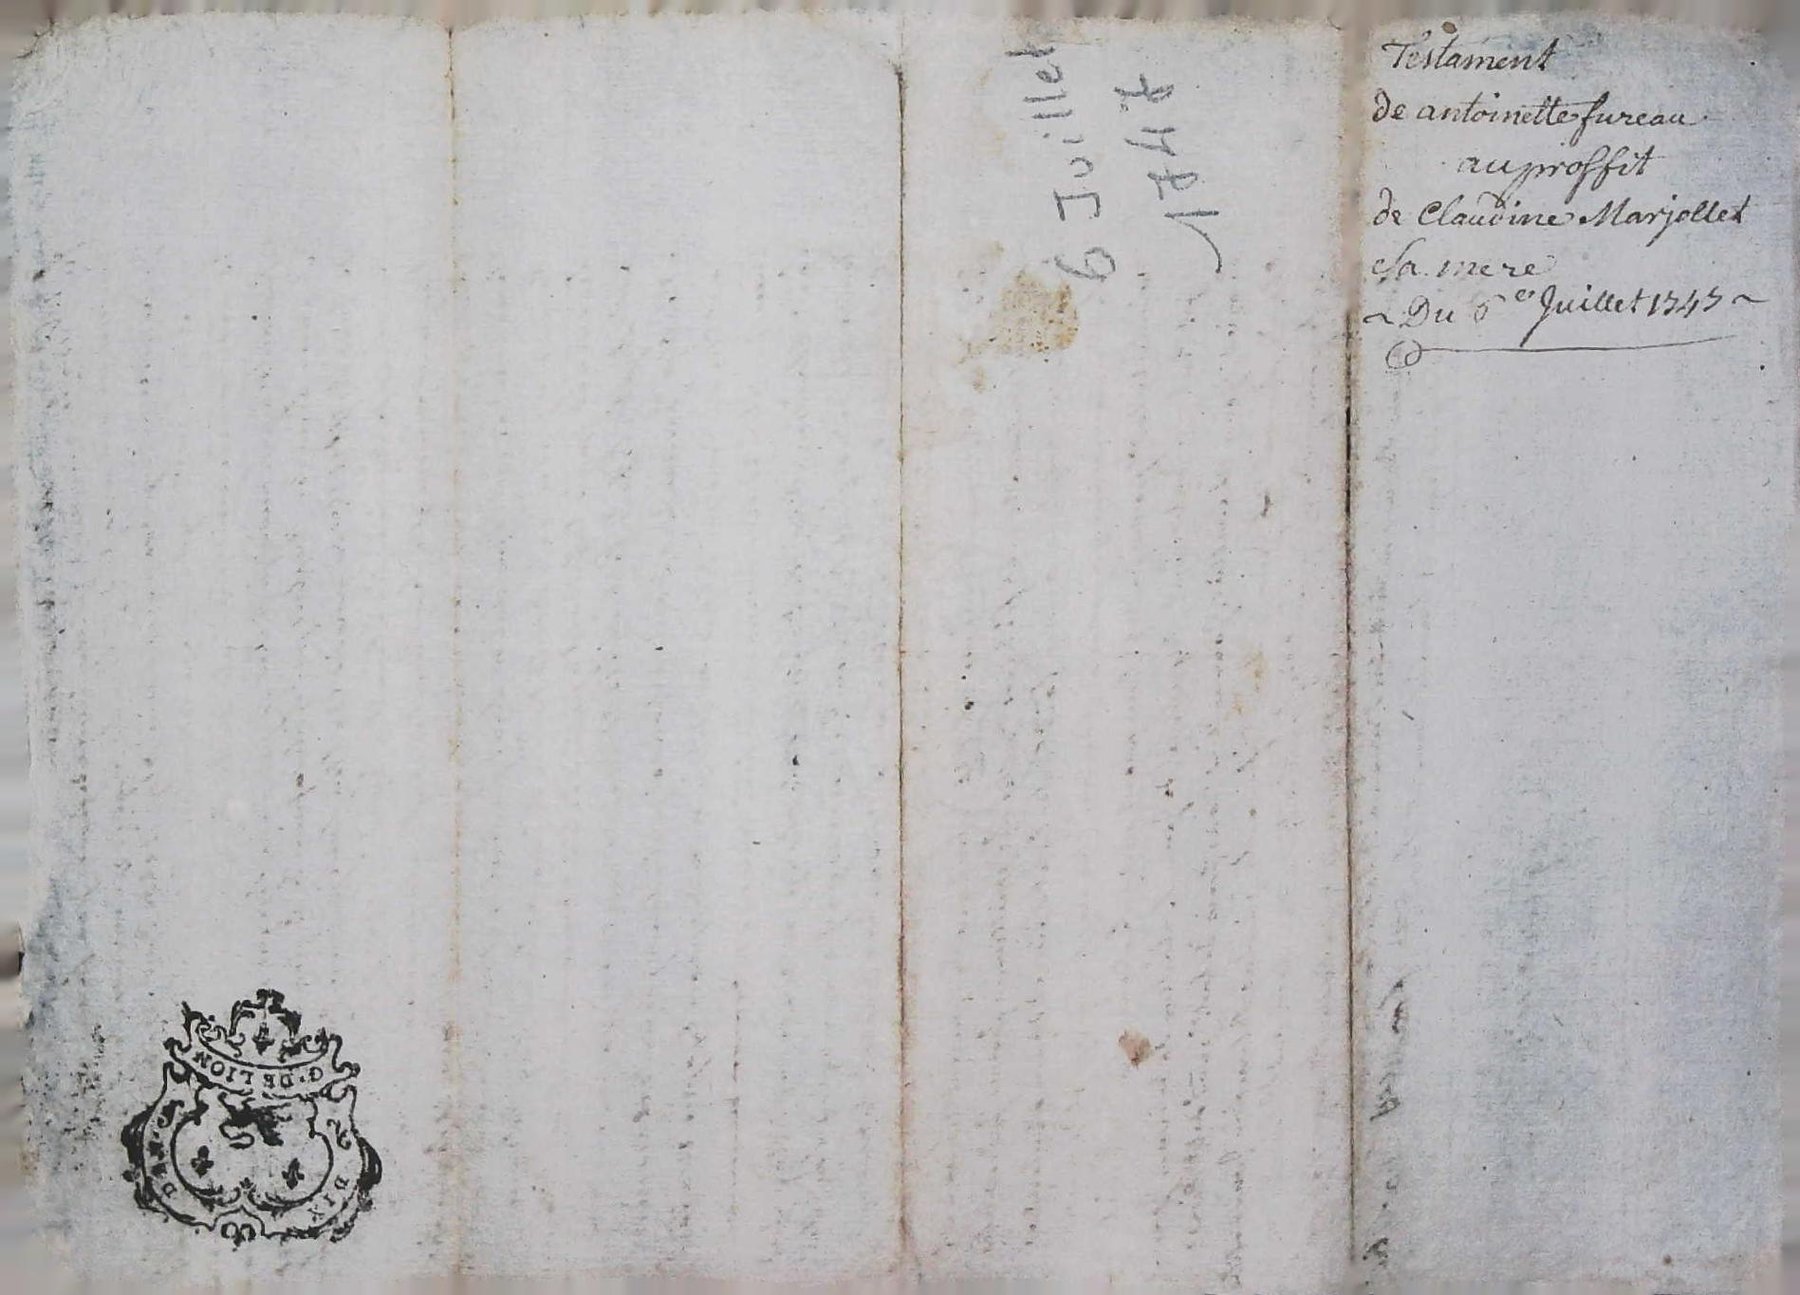 Testament
de antoinette fureau
au proffit
de Claudine Marjollet
sa mere
~ Du 6e Juillet 1747 ~
6 Juillet
1747
G. DE LION
DIX